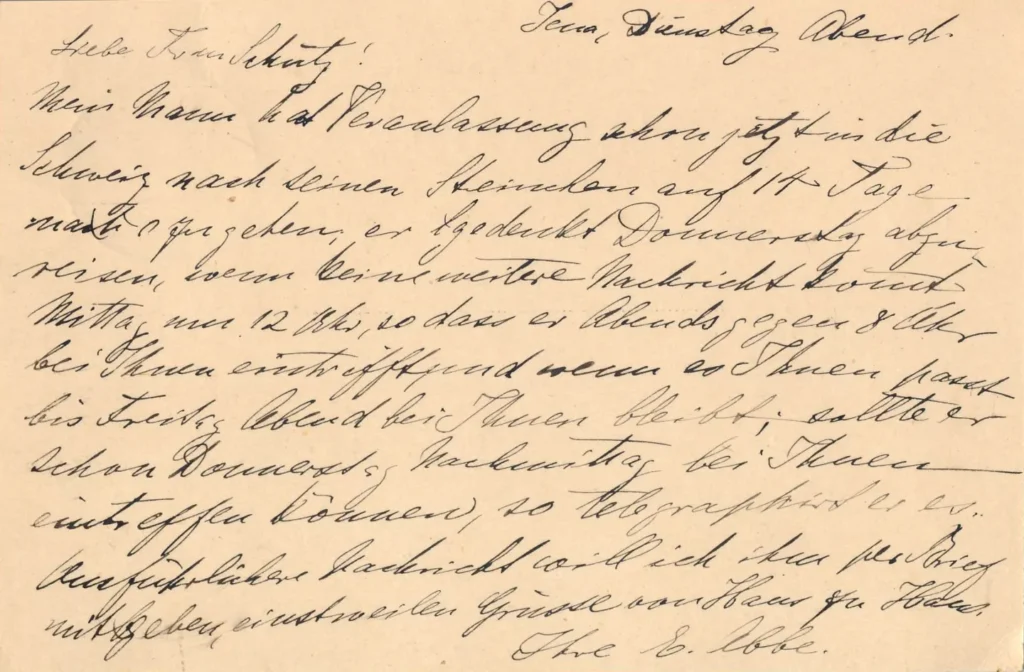 Jena, Dienstag Abend.
Liebe Frau Schütz!
Mein Mann hat Veranlassung schon jetzt in die
Schweiz nach seinen Steinchen auf 14 Tage
zu gehen, er gedenkt Donnerstag abzu-
reisen, wenn keine weitere Nachricht komt
Mittag um 12 Uhr, so dass er Abends gegen 8 Uhr
bei Ihnen eintrifft und wenn es Ihnen passt
bis Freitag Abend bei Ihnen bleibt; sollte er
schon Donnerstag Nachmittag bei Ihnen
eintreffen können, so telegraphirt er es.
Ausführlichere Nachricht will ich ihm per Brief
mitgeben, einstweilen Grüsse von Haus zu Haus.
Ihre E. Abbe.